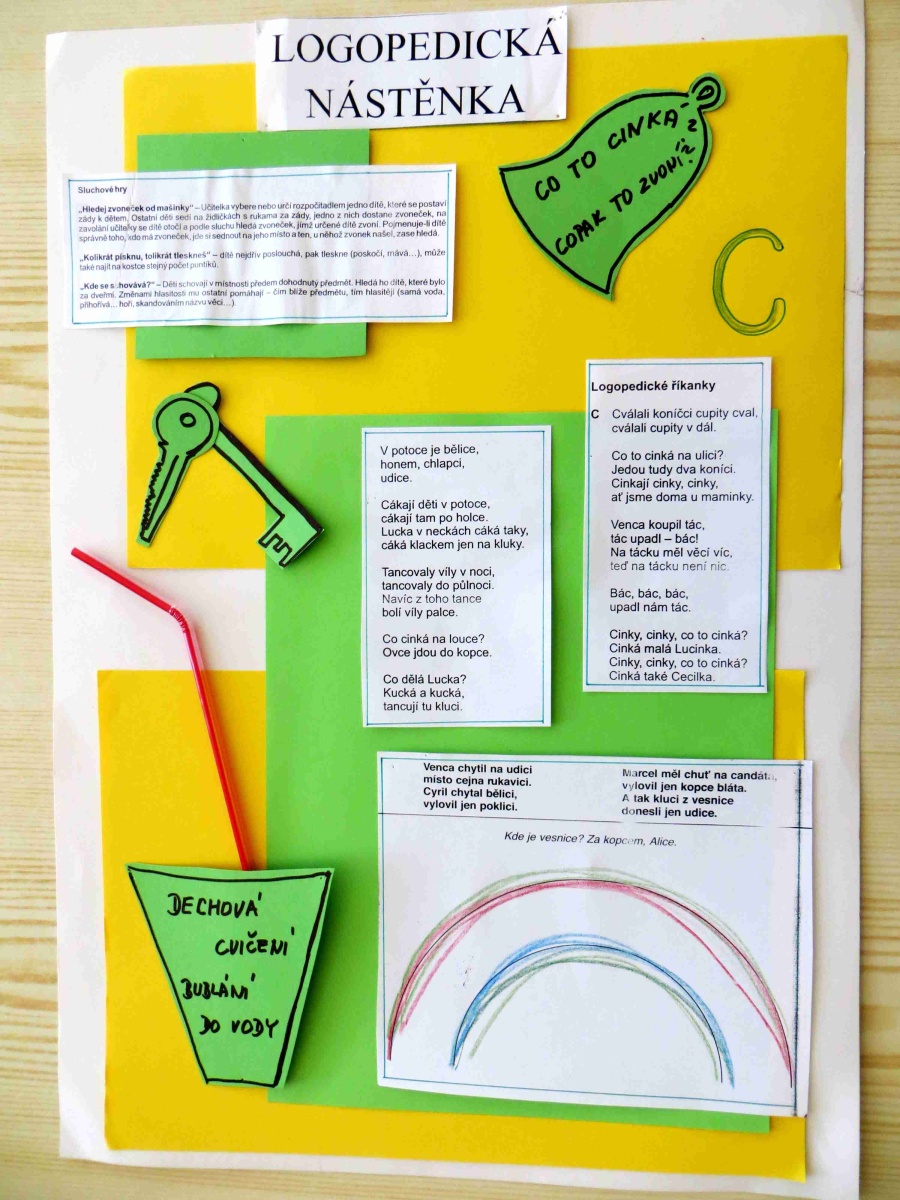 LOGOPEDICKÁ
NÁSTĚNKA
Sluchové hry
„Hledej zvoneček od mašinky“ – Učitelka vybere nebo určí rozpočítadlem jedno dítě, které se postaví
zády k dětem. Ostatní děti sedí na židličkách s rukama za zády, jedno z nich dostane zvoneček, na
zavolání učitelky se dítě otočí a podle sluchu hledá zvoneček, jímž určené dítě zvoní. Pojmenuje-li dítě
správně toho, kdo má zvoneček, jde si sednout na jeho místo a ten, u něhož zvonek našel, zase hledá.
„Kolikrát písknu, tolikrát tleskneš“ – dítě nejdřív poslouchá, pak tleskne (poskočí, mává…), může
také najít na kostce stejný počet puntíků.
„Kde se schovává?“ – Děti schovají v místnosti předem dohodnutý předmět. Hledá ho dítě, které bylo
za dveřmi. Změnami hlasitosti mu ostatní pomáhají – čím blíže předmětu, tím hlasitěji (samá voda,
přihořívá… hoří, skandováním názvu věci…).
CO TO CINKÁ?
COPAK TO ZVONÍ?
C
Logopedické říkanky
C Cválali koníčci cupity cval,
cválali cupity v dál.
Co to cinká na ulici?
Jedou tudy dva koníci.
Cinkají cinky, cinky,
ať jsme doma u maminky.
Venca koupil tác,
tác upadl – bác!
Na tácku měl věcí víc,
teď na tácku není nic.
Bác, bác, bác,
upadl nám tác.
Cinky, cinky, co to cinká?
Cinká malá Lucinka.
Cinky, cinky, co to cinká?
Cinká také Cecilka.
V potoce je bělice,
honem, chlapci,
udice.
Cákají děti v potoce,
cákají tam po holce.
Lucka v neckách cáká taky,
cáká klackem jen na kluky.
Tancovaly víly v noci,
tancovaly do půlnoci.
Navíc z toho tance
bolí víly palce.
Co cinká na louce?
Ovce jdou do kopce.
Co dělá Lucka?
Kucká a kucká,
tancují tu kluci.
Venca chytil na udici
místo cejna rukavici.
Cyril chytal bělici,
vylovil jen poklici.
Marcel měl chuť na candáta,
vylovil jen kopce bláta.
A tak kluci z vesnice
donesli jen udice.
Kde je vesnice? Za kopcem, Alice.
DECHOVÁ
CVIČENÍ
BUBLÁNÍ
DO VODY